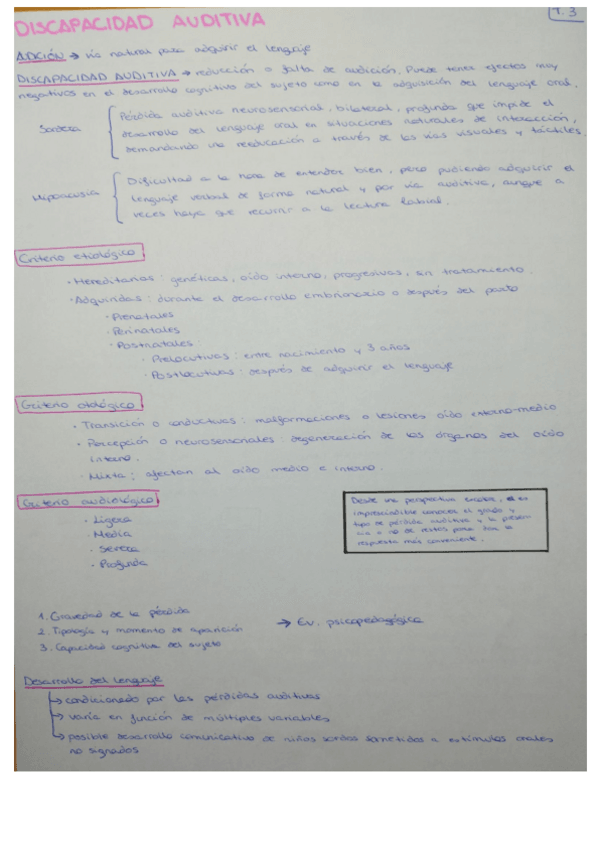 DISCAPACIDAD AUDITIVA
T.3
AUDICIÓN → vía natural para adquirir el lenguaje
DISCAPACIDAD AUDITIVA → reducción o falta de audición. Puede tener efectos muy
negativos en el desarrollo cognitivo del sujeto como en la adquisición del lenguaje oral.
Sordera
Pérdida auditiva neurosensorial, bilateral, profunda que impide el
desarrollo del lenguaje oral en situaciones naturales de interacción,
demandando una reeducación a través de las vías visuales y táctiles.
Hipoacusia
Dificultad a la hora de entender bien, pero pudiendo adquirir el
lenguaje verbal de forma natural y por vía auditiva, aunque a
veces haya que recurrir a la lectura labial.
Criterio etiológico
· Hereditarias: genéticas, oído interno, progresivas, sin tratamiento.
· Adquiridas: durante el desarrollo embrionario o después del parto
· Prenatales
· Perinatales
· Postnatales:
· Prelocutivas: entre nacimiento y 3 años
· Postlocutivas: después de adquirir el lenguaje
Criterio otológico
· Transición o conductivas: malformaciones o lesiones oído externo-medio
· Percepción o neurosensoriales: degeneración de los órganos del oído
interno.
· Mixta: afectan al oído medio e interno.
Criterio audiológico
· Ligera
· Media
· Severa
· Profunda
Desde una perspectiva escolar, es
imprescindible conocer el grado y
tipo de pérdida auditiva y la presen
cia o no de restos para dar la
respuesta más conveniente.
1. Gravedad de la pérdida
2. Tipología y momento de aparición
3. Capacidad cognitiva del sujeto
→ Ev. psicopedagógica
Desarrollo del lenguaje
↳ condicionado por las pérdidas auditivas
↳ varía en función de múltiples variables
↳ posible desarrollo comunicativo de niños sordos sometidos a estímulos orales
no signados